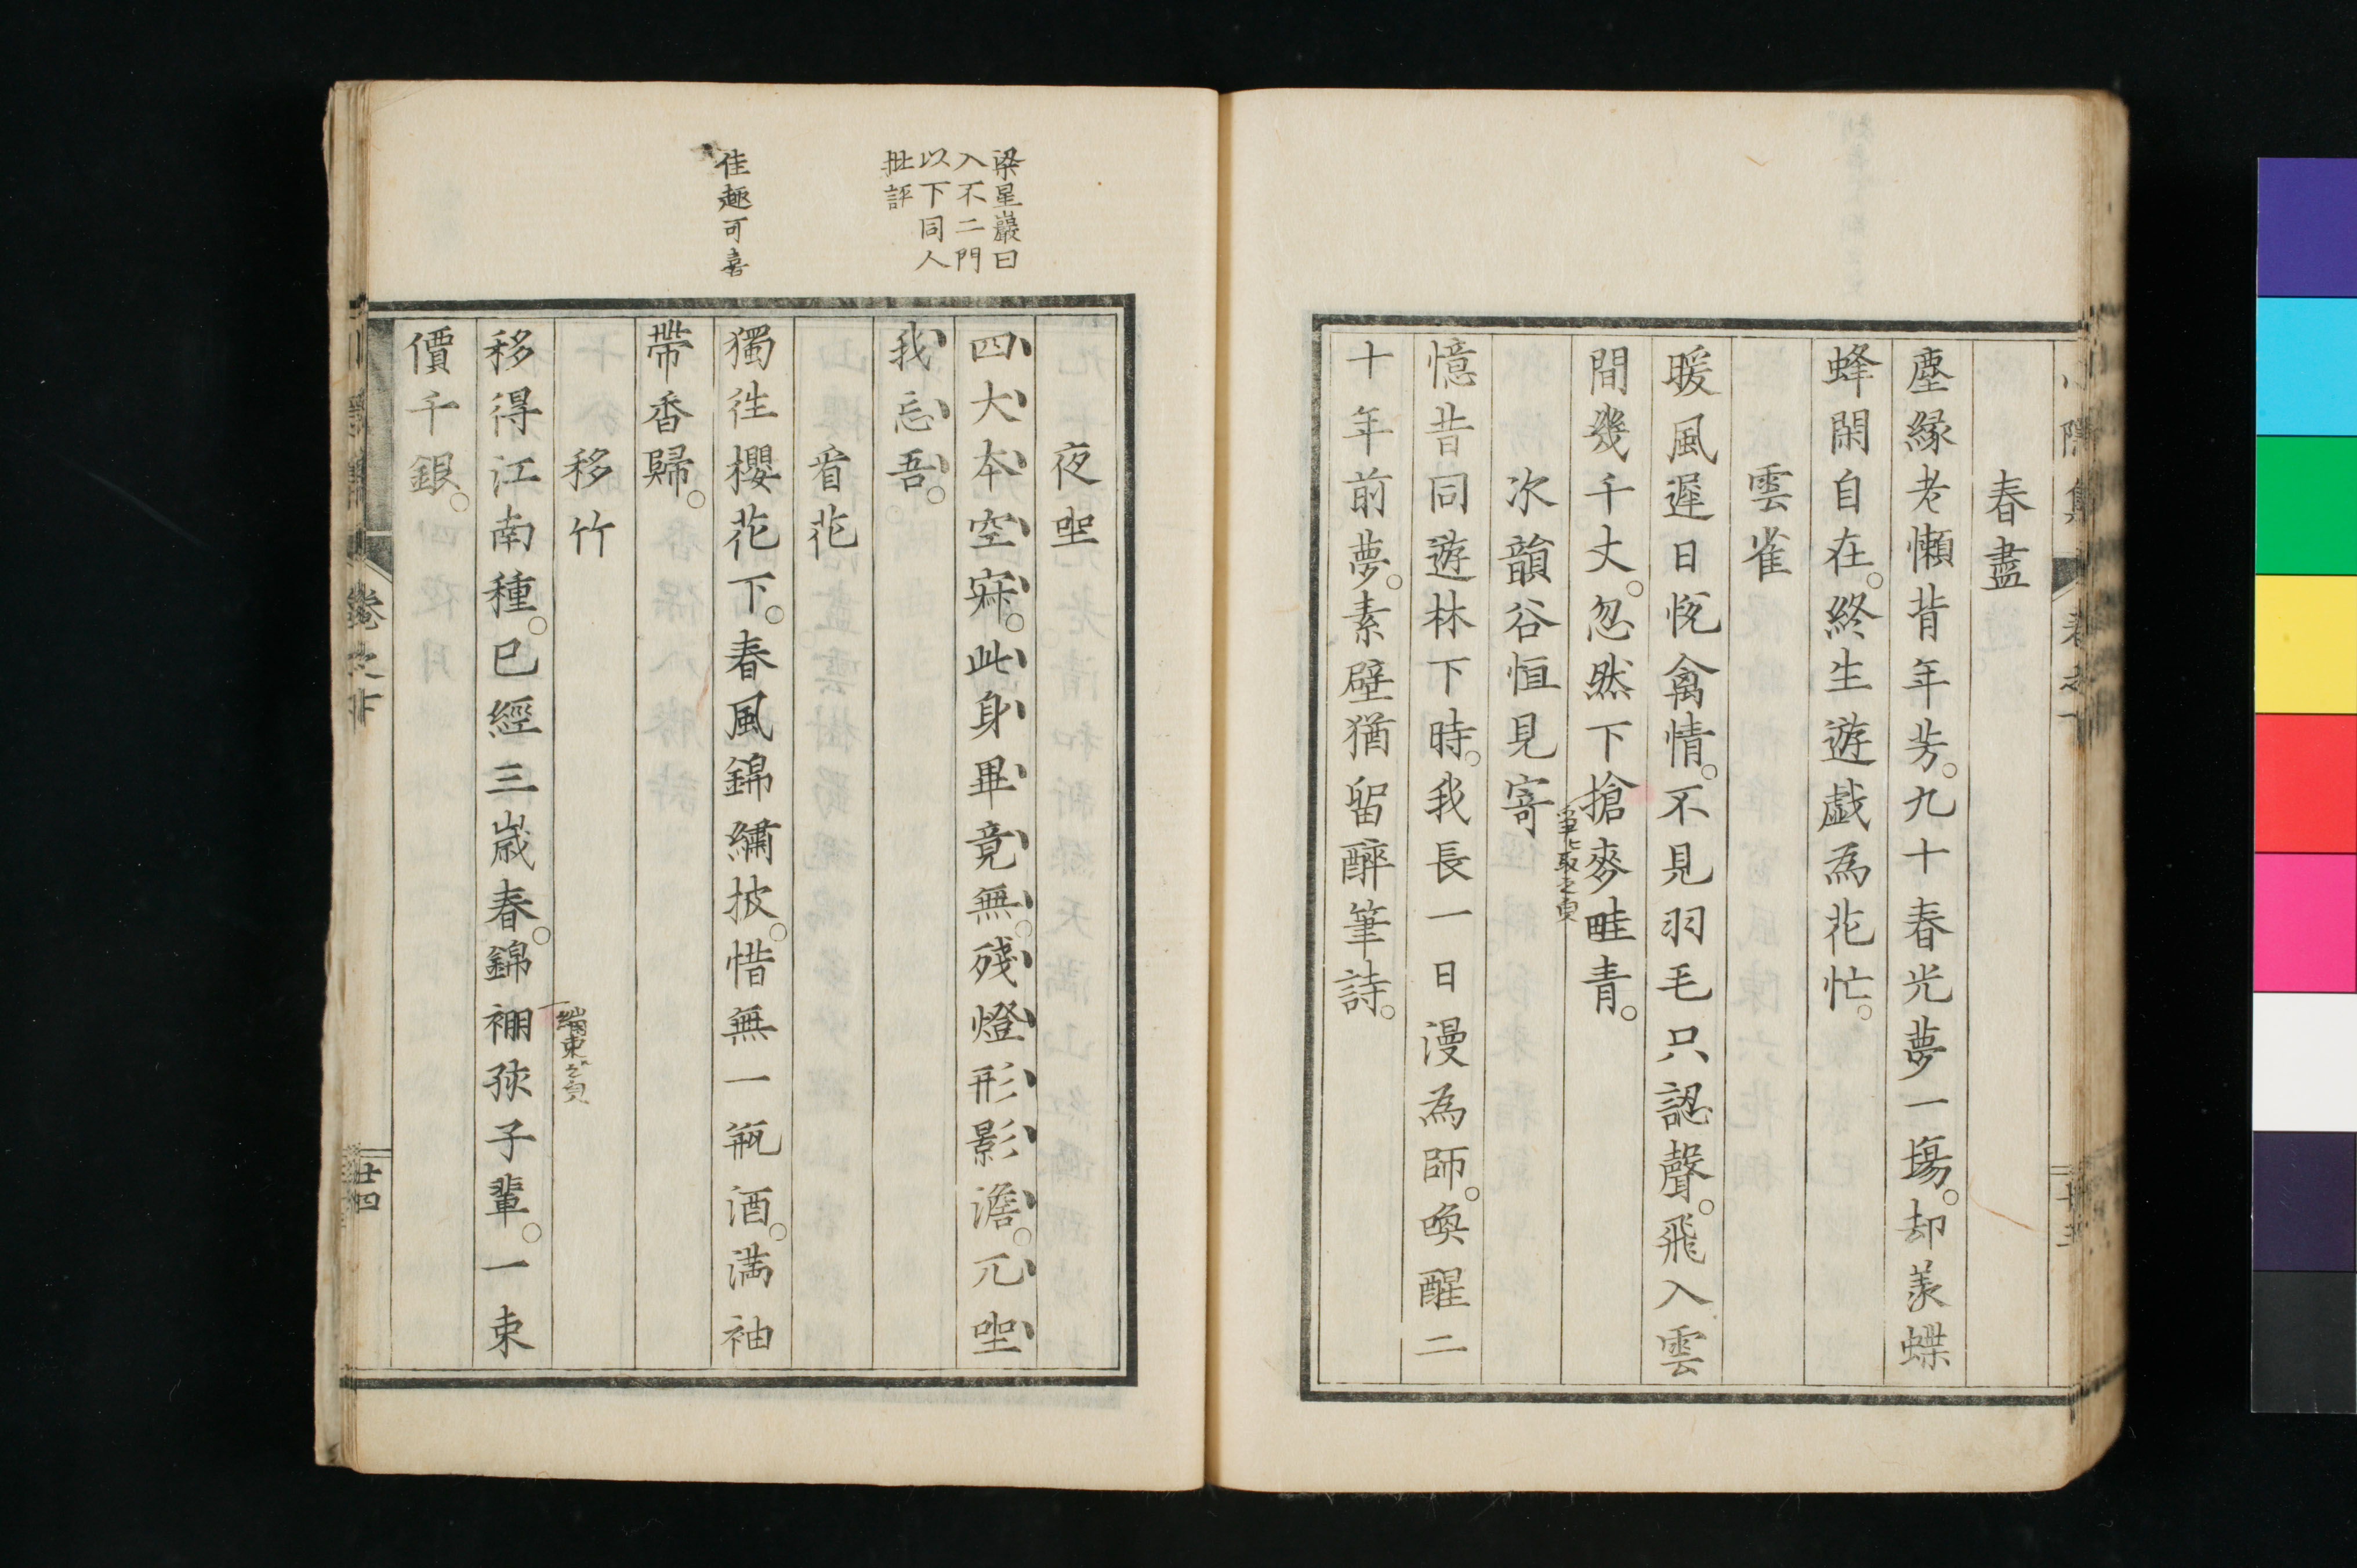 春盡
塵縁老懶背年芳。九十春光夢一場。却羨蝶
蜂閑自在。終生遊戯為花忙。
雲雀
暖風遲日悦禽情。不見羽毛只認聲。飛入雲
間幾千丈。忽然下搶麥畦青。
次韻谷恒見寄
憶昔同遊林下時。我長一日漫為師。喚醒二
十年前夢。素壁猶留醉筆詩。
梁星巖曰
入不二門
以下同人
批評
佳趣可喜
夜坐
四大本空寂。此身畢竟無。殘燈形影澹。兀坐
我忘吾。
看花
獨徃櫻花下。春風錦繡披。惜無一瓶酒。満袖
帶香歸。
移竹
移得江南種。已經三歳春。錦襽孫子輩。一束
價千銀。
廿四